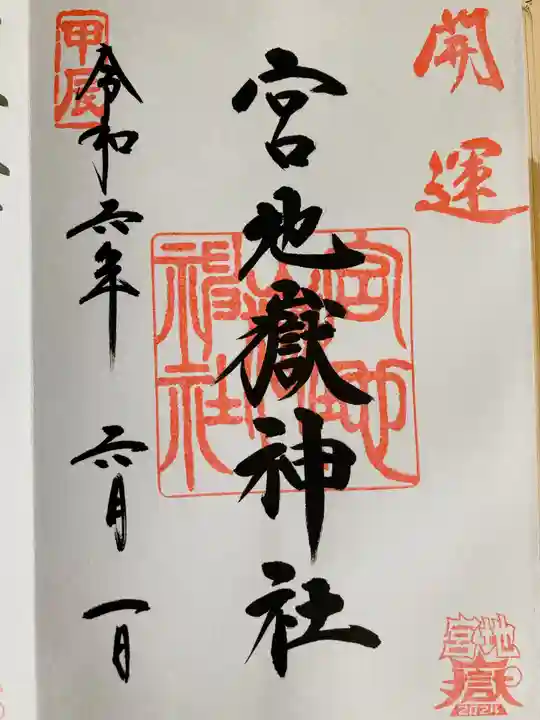 開運
宮地嶽神社
宮地嶽神社
甲辰
令和六年 六月 一日
宮地
嶽
2024